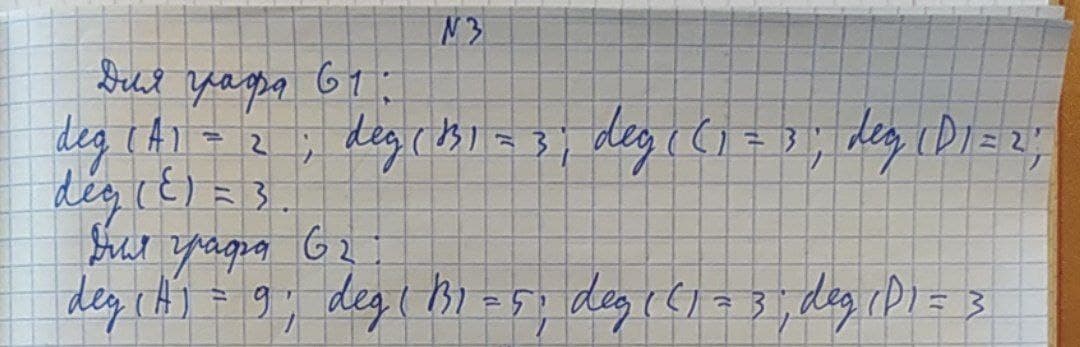 N3
Для графа G1:
deg(A) = 2; deg(B) = 3; deg(C) = 3; deg(D) = 2;
deg(E) = 3.
Для графа G2:
deg(A) = 9; deg(B) = 5; deg(C) = 3; deg(D) = 3